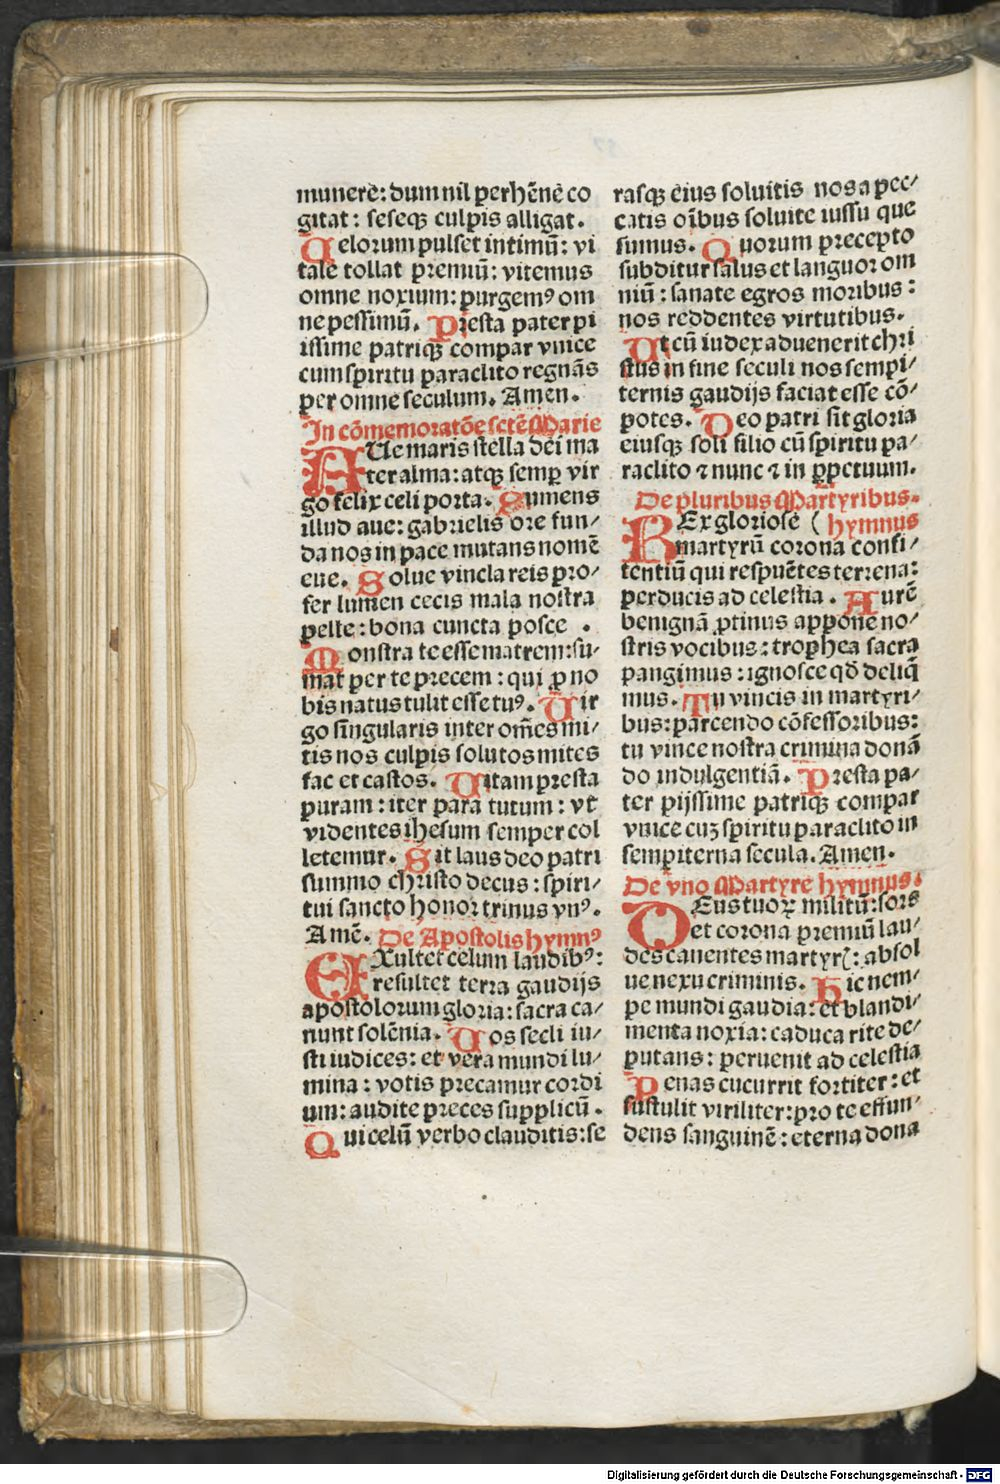 munere: dum nil perhēne co
gitat: seseqꝫ culpis alligat.
Celorum pulset intimū: vi
tale tollat premiū: vitemus
omne noxium: purgemꝰ om
ne pessimū. Presta pater pi
issime patriqꝫ compar vnice
cum spiritu paraclito regnās
per omne seculum. Amen.
In cōmemoratōe sctē Marie
AUe maris stella dei ma
ter alma: atqꝫ semꝑ vir
go felix celi porta. Sumens
illud aue: gabrielis ore fun/
da nos in pace mutans nomē
eue. Solue vincla reis pro/
fer lumen cecis mala nostra
pelle: bona cuncta posce .
Monstra te esse matrem: su/
mat per te precem: qui ꝓ no
bis natus tulit esse tuꝰ. Uir
go singularis inter om̄es mi/
tis nos culpis solutos mites
fac et castos. Uitam presta
puram: iter para tutum: vt
videntes ihesum semper col
letemur. Sit laus deo patri
summo christo decus: spiri/
tui sancto honor trinus vnꝰ.
Amē. De Apostolis hymnꝰ
EXultet celum laudibꝰ:
resultet terra gaudijs
apostolorum gloria: sacra ca/
nunt solēnia. Uos secli iu/
sti iudices: et vera mundi lu/
mina: votis precamur cordi
um: audite preces supplicū.
Qui celū verbo clauditis: se
rasqꝫ eius soluitis nos a pec/
catis oībus soluite iussu que
sumus. Quorum precepto
subditur salus et languor om
niū: sanate egros moribus:
nos reddentes virtutibus.
Ut cū iudex aduenerit chri
stus in fine seculi nos sempi/
ternis gaudijs faciat esse cō/
potes. Deo patri sit gloria
eiusqꝫ soli filio cū spiritu pa/
raclito ⁊ nunc ⁊ in ꝑpetuum.
De pluribus Martyribus.
REx gloriose ( hymnus
martyrū corona confi/
tentiū qui respuētes terrena:
perducis ad celestia. Aurē
benignā ꝓtinus appone no/
stris vocibus: trophea sacra
pangimus: ignosce qd̄ deliq̄
mus. Tu vincis in martyri/
bus: parcendo cōfessoribus:
tu vince nostra crimina donā
do indulgentiā. Presta pa/
ter pijssime patriqꝫ compar
vnice cuꝫ spiritu paraclito in
sempiterna secula. Amen.
De vno Martyre hymnus.
DEus tuoꝝ militū: sors
et corona premiū lau/
des canentes martyrꝭ: absol
ue nexu criminis. Hic nem/
pe mundi gaudia: et blandi/
menta noxia: caduca rite de/
putans: peruenit ad celestia
Penas cucurrit fortiter: et
sustulit viriliter: pro te effun/
dens sanguinē: eterna dona
Digitalisierung gefördert durch die Deutsche Forschungsgemeinschaft - DFG